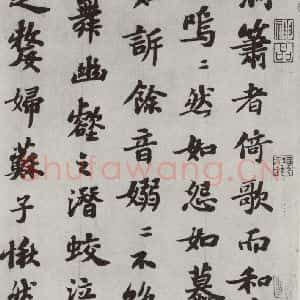 簫者倚歌而和
嗚〻然如怨如慕
訴餘音嫋〻不
舞幽壑之潛蛟泣
嫠婦蘇子愀然
神品
shufawang.CN